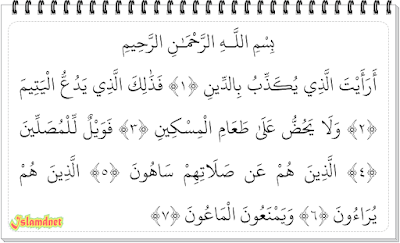 بِسْمِ اللَّـهِ الرَّحْمَـٰنِ الرَّحِيمِ
أَرَأَيْتَ الَّذِي يُكَذِّبُ بِالدِّينِ ﴿١﴾ فَذَٰلِكَ الَّذِي يَدُعُّ الْيَتِيمَ
﴿٢﴾ وَلَا يَحُضُّ عَلَىٰ طَعَامِ الْمِسْكِينِ ﴿٣﴾ فَوَيْلٌ لِّلْمُصَلِّينَ
﴿٤﴾ الَّذِينَ هُمْ عَن صَلَاتِهِمْ سَاهُونَ ﴿٥﴾ الَّذِينَ هُمْ
يُرَاءُونَ ﴿٦﴾ وَيَمْنَعُونَ الْمَاعُونَ ﴿٧﴾
islamdnet